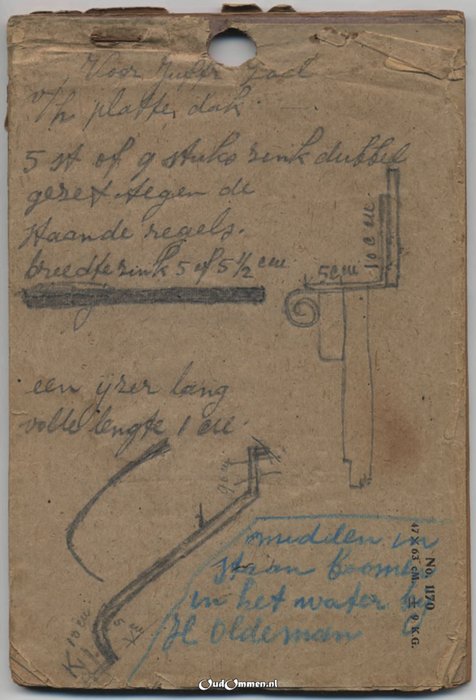 Voor Juffr
v/h platte dak.
5 st of 9 stuks zink dubbel
gezet tegen de
staande regels.
breedte zink 5 of 5 1/2 cm
5 cm
10 cm
een ijzer lang
volle lengte 1 cm.
10 cm
midden in
staan boomen
in het water bij
H Oldeman
No. 1170
47 × 63 cM. = 9 K.G.
OudOmmen.nl